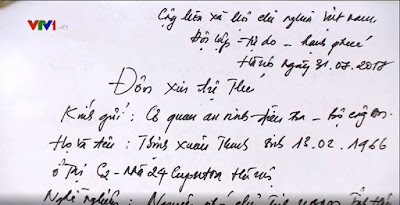 VTV1
Cộng hòa xã hội chủ nghĩa Việt nam
Độc lập - tự do - hạnh phúc
Hà nội ngày 31.07.2017
Đơn xin tự Thú
Kính gửi : Cơ quan an ninh điều tra - bộ công an.
Họ và tên : Trịnh Xuân Thanh Sinh 13.02.1966
Ở Tại C2 - Nhà 24 Hà nội
Nghề nghiệp : Nguyên phó chủ tịch